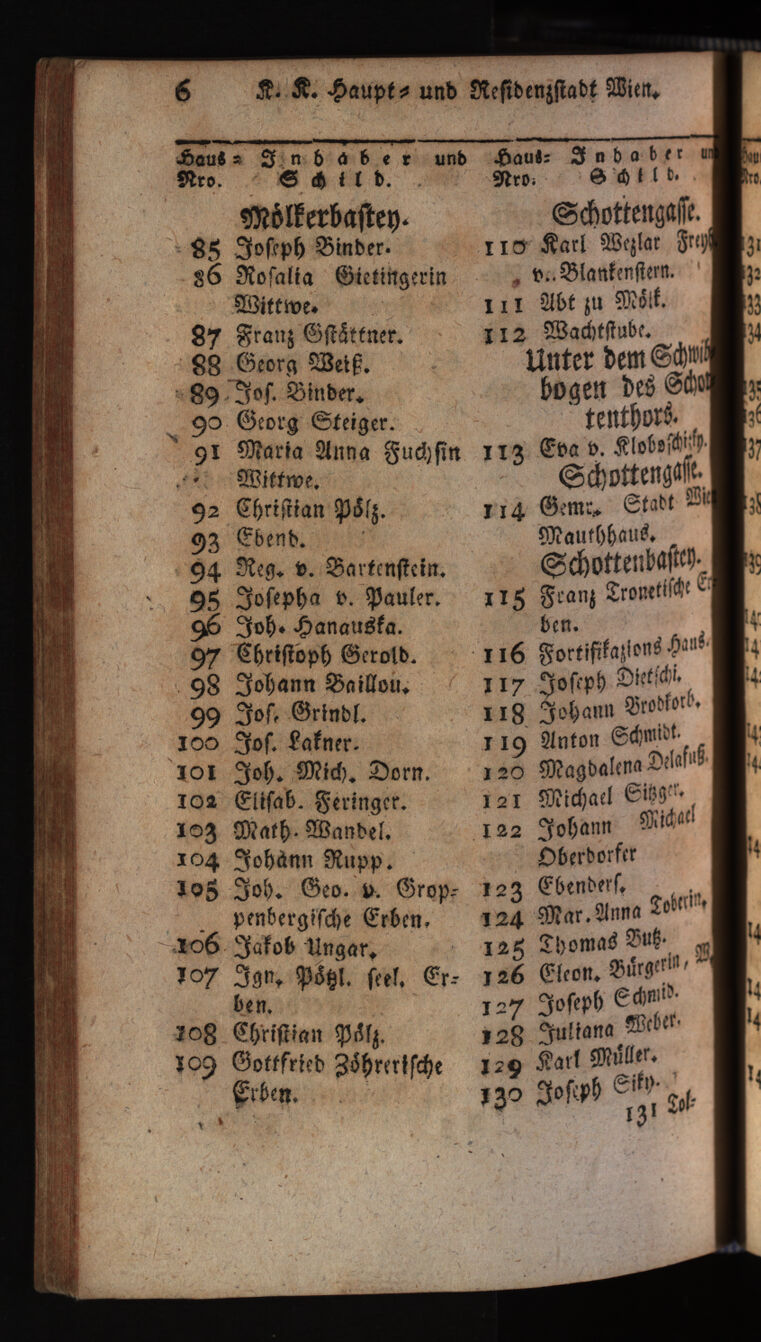 6 K. K. Haupt- und Residenzstadt Wien.
Haus- Innhaber und
Nro. Schild.
Mölkerbastey.
85 Joseph Binder.
86 Rosalia Gietingerin
Wittwe.
87 Franz Gstättner.
88 Georg Weiß.
89 Jos. Binder.
90 Georg Steiger.
91 Maria Anna Fuchsin
Wittwe.
92 Christian Pölz.
93 Ebend.
94 Reg. v. Bartenstein.
95 Josepha v. Pauler.
96 Joh. Hanauska.
97 Christoph Gerold.
98 Johann Baillou.
99 Jos. Grindl.
100 Jos. Lakner.
101 Joh. Mich. Dorn.
102 Elisab. Feringer.
103 Math. Wandel.
104 Johann Rupp.
105 Joh. Geo. v. Grop-
penbergische Erben.
106 Jakob Ungar.
107 Ign. Pötzl. seel. Er-
ben.
108 Christian Pölz.
109 Gottfried Zöhrerische
Erben.
Haus- Innhaber
Nro. Schild.
Schottengasse.
110 Karl Wezlar
v. Blankenstern.
111 Abt zu Mölk.
112 Wachtstube.
Unter dem
bogen des
tenthors.
113 Eva v.
Schottengasse.
114 Gemr. Stadt
Mauthhaus.
Schottenbastey.
115 Franz Tronetische
ben.
116 Fortifikazions Haus.
117 Joseph Dietschi.
118 Johann Brodkorb.
119 Anton Schmidt.
120 Magdalena
121 Michael Sitzger.
122 Johann Michael
Oberdorfer
123 Ebenders.
124 Mar. Anna Toberin.
125 Thomas Butz.
126 Eleon. Bürgerin,
127 Joseph Schmid.
128 Juliana Weber.
129 Karl Müller.
130 Joseph Siky.
131 Tol-